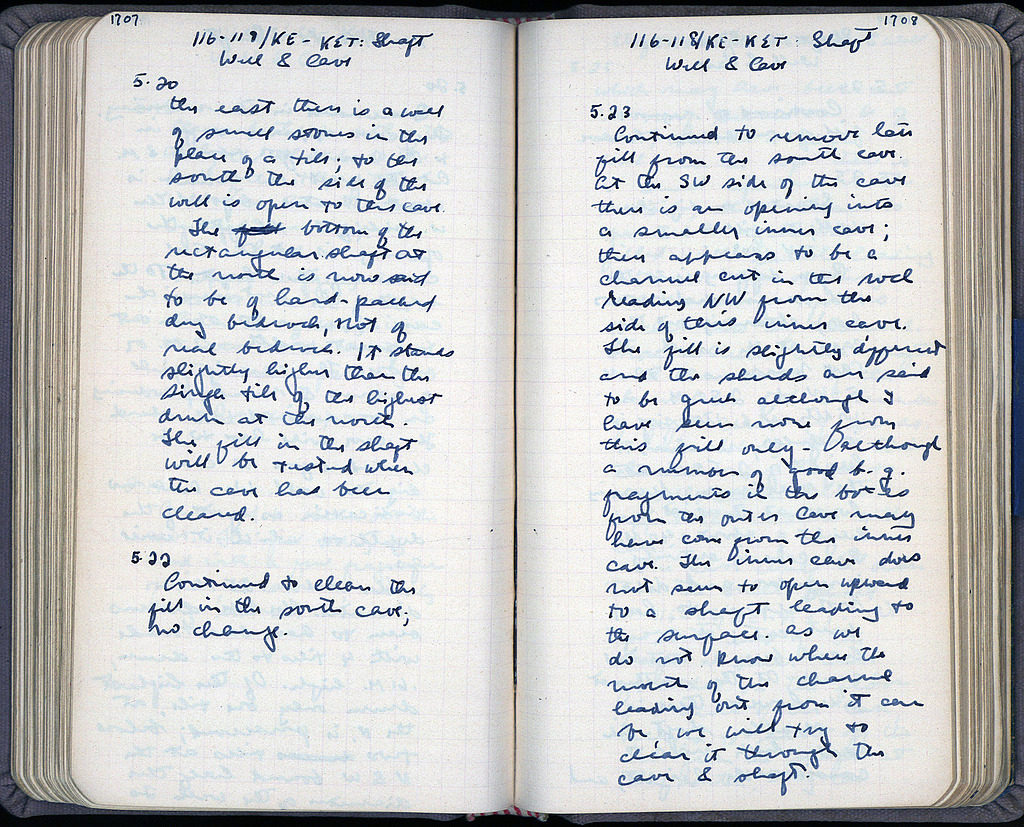 1707
116-118/KE-KET: Shaft
Well & Cave
5.20
the east there is a wall
of small stones in the
place of a tile; to the
south the side of the
well is open to the cave.
The bottom of the
rectangular shaft at
the north is now said
to be of hard-packed
dug bedrock, not of
real bedrock. It stands
slightly higher than the
single tile of the highest
drum at the north.
The fill in the shaft
will be tested when
the cave has been
cleared.
5.22
Continued to clean the
fill in the south cave;
no change.
1708
116-118/KE-KET: Shaft
Well & Cave
5.23
Continued to remove late
fill from the south cave.
At the SW side of the cave
there is an opening into
a smaller inner cave;
there appears to be a
channel cut in the rock
leading NW from the
side of this inner cave.
The fill is slightly different
and the sherds are said
to be good although I
have seen none from
this fill only - although
a number of good b.g.
fragments in the boxes
from the outer cave may
have come from the inner
cave. The inner cave does
not seem to open upward
to a shaft leading to
the surface. As we
do not know where the
mouth of the channel
leading out from it can
be we will try to
clear it through the
cave & shaft.